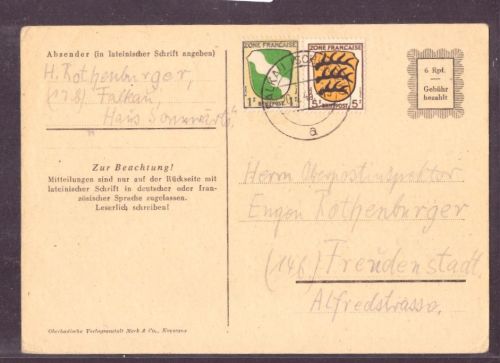 Absender (in lateinischer Schrift angeben)
H. Rothenburger,
(17b) Falkau,
Haus
Zur Beachtung!
Mitteilungen sind nur auf der Rückseite mit
lateinischer Schrift in deutscher oder fran-
zösischer Sprache zugelassen.
Leserlich schreiben!
Oberbadische Verlagsanstalt Merk & Co., Konstanz
ZONE FRANÇAISE
1 Pf
BRIEFPOST
ZONE FRANÇAISE
5 Pf
BRIEFPOST
5 Pf
FALKAU
a
6 Rpf.
Gebühr
bezahlt
Herrn Oberpostinspektor
Eugen Rothenburger
(14b) Freudenstadt
Alfredstrasse.